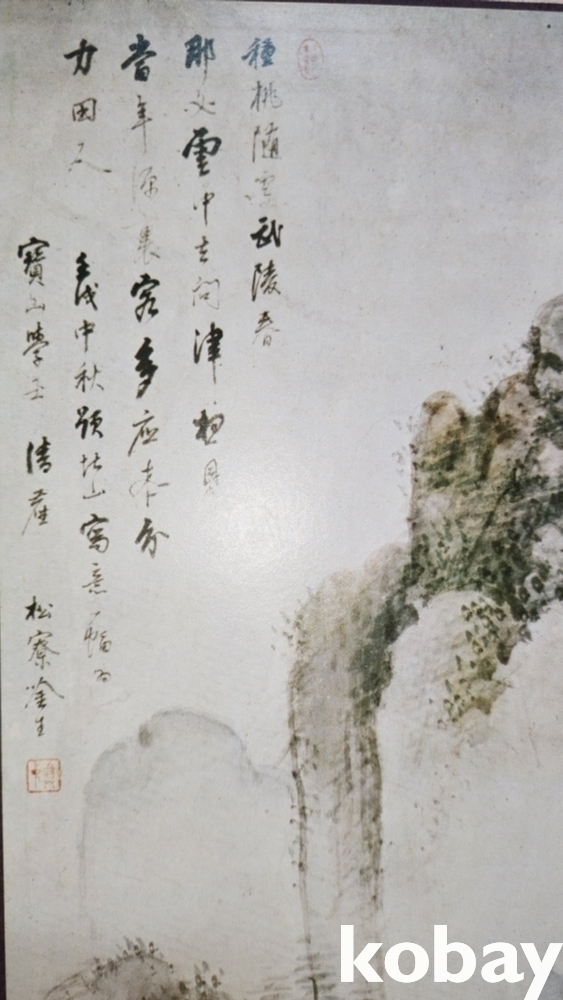 種桃隨處武陵春
那必雲中去問津想見
當年源裏客多應本分
力田人
壬戌中秋題山寫意一幅為
寶山學士清
松寮生
kobay